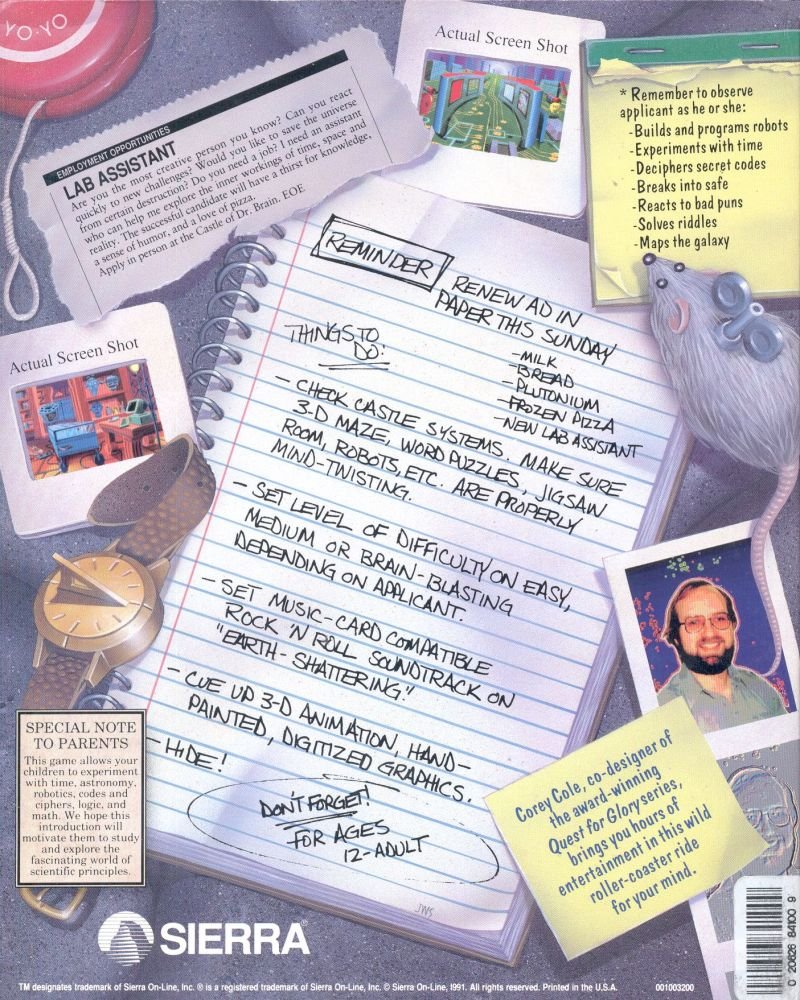 YO-YO
EMPLOYMENT OPPORTUNITIES
LAB ASSISTANT
Are you the most creative person you know? Can you react
quickly to new challenges? Would you like to save the universe
from certain destruction? Do you need a job? I need an assistant
who can help me explore the inner workings of time, space and
reality. The successful candidate will have a thirst for knowledge,
a sense of humor, and a love of pizza.
Apply in person at the Castle of Dr. Brain. EOE
Actual Screen Shot
* Remember to observe
applicant as he or she:
-Builds and programs robots
-Experiments with time
-Deciphers secret codes
-Breaks into safe
-Reacts to bad puns
-Solves riddles
-Maps the galaxy
Actual Screen Shot
REMINDER
RENEW AD IN
PAPER THIS SUNDAY
THINGS TO
DO:
-MILK
-BREAD
-PLUTONIUM
-FROZEN PIZZA
-NEW LAB ASSISTANT
- CHECK CASTLE SYSTEMS. MAKE SURE
3-D MAZE, WORD PUZZLES, JIGSAW
ROOM, ROBOTS, ETC. ARE PROPERLY
MIND-TWISTING.
- SET LEVEL OF DIFFICULTY ON EASY,
MEDIUM OR BRAIN-BLASTING
DEPENDING ON APPLICANT.
- SET MUSIC-CARD COMPATIBLE
ROCK 'N ROLL SOUNDTRACK ON
"EARTH-SHATTERING."
- CUE UP 3-D ANIMATION, HAND-
PAINTED, DIGITIZED GRAPHICS.
- HIDE!
DON'T FORGET!
FOR AGES
12-ADULT
JWS
SPECIAL NOTE
TO PARENTS
This game allows your
children to experiment
with time, astronomy,
robotics, codes and
ciphers, logic, and
math. We hope this
introduction will
motivate them to study
and explore the
fascinating world of
scientific principles.
Corey Cole, co-designer of
the award-winning
Quest for Glory series,
brings you hours of
entertainment in this wild
roller-coaster ride
for your mind.
SIERRA®
0 20626 84100 9
TM designates trademark of Sierra On-Line, Inc. ® is a registered trademark of Sierra On-Line, Inc. © Sierra On-Line, 1991. All rights reserved. Printed in the U.S.A.
001003200